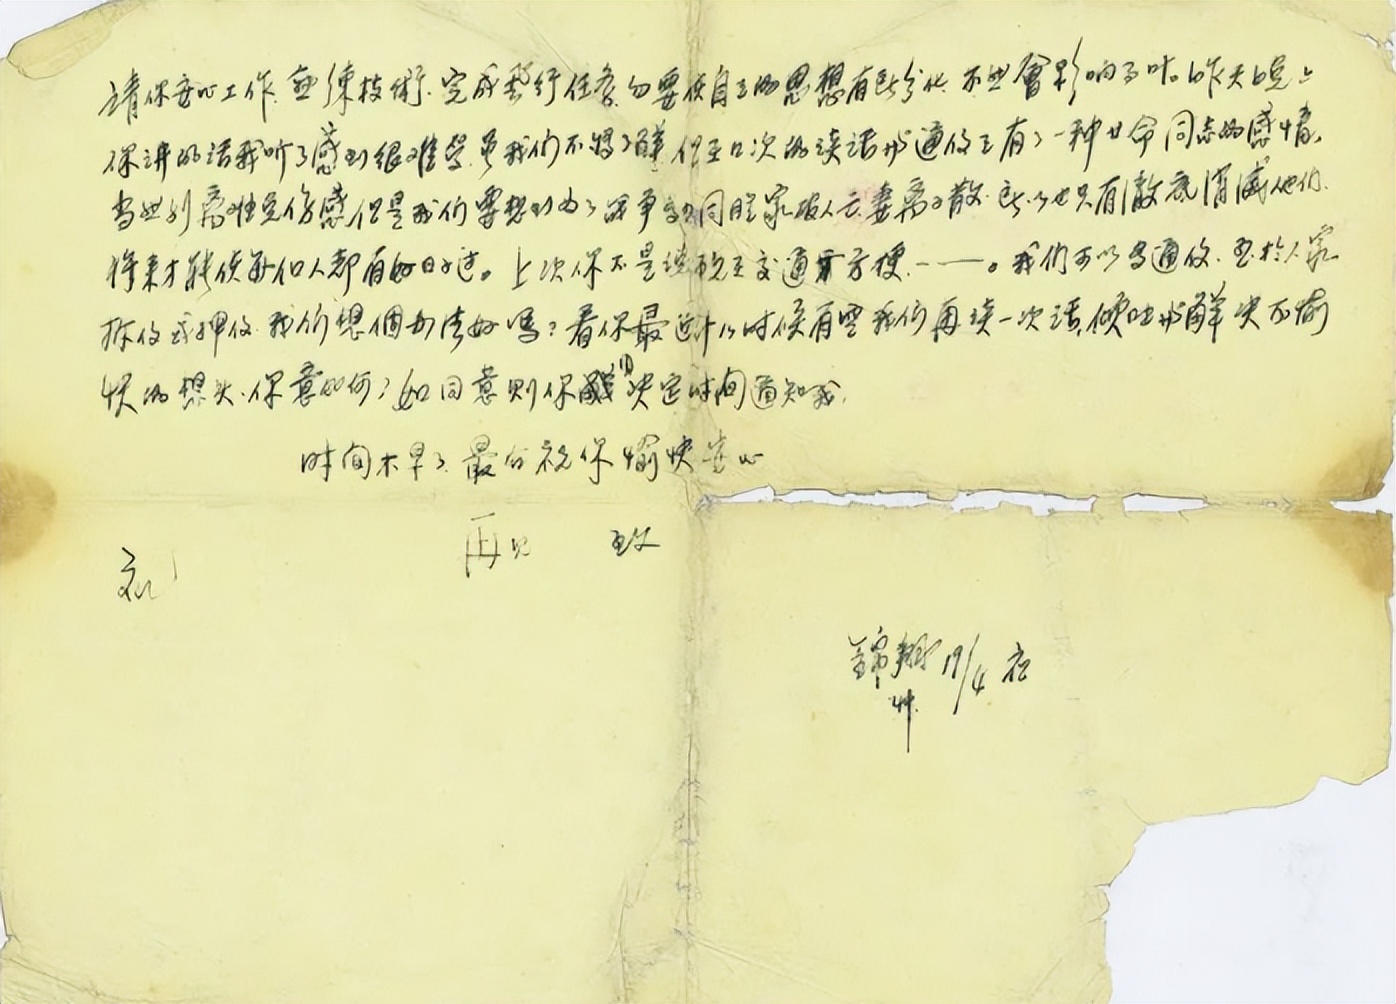 请你安心工作，熟練技術，完成飛行任务，勿要使自己的思想有所分化，不然會影响了味。昨天晚上
你讲的话我听了感到很难受，虽我们不得了解，但在口次的谈话我通信之有了一种革命同志的感情。
当然别离难免傷感但是我们要想到为了战争多少同胞家破人亡妻离子散，所以也只有澈底消滅他们，
将来才能使每個人都有好日子过。上次你不是说现在交通 方便，——。我们可以多通信，至於人家
拆信或押信，我们想個办法好嗎？看你最近什么时候有空我们再谈一次话，傾吐我解决不愉
快的想头，你意如何？如同意则你 们决定时间通知我，
时间不早了，最后祝你愉快安心
再见 致
礼！
錦翔 19/4 夜
艸